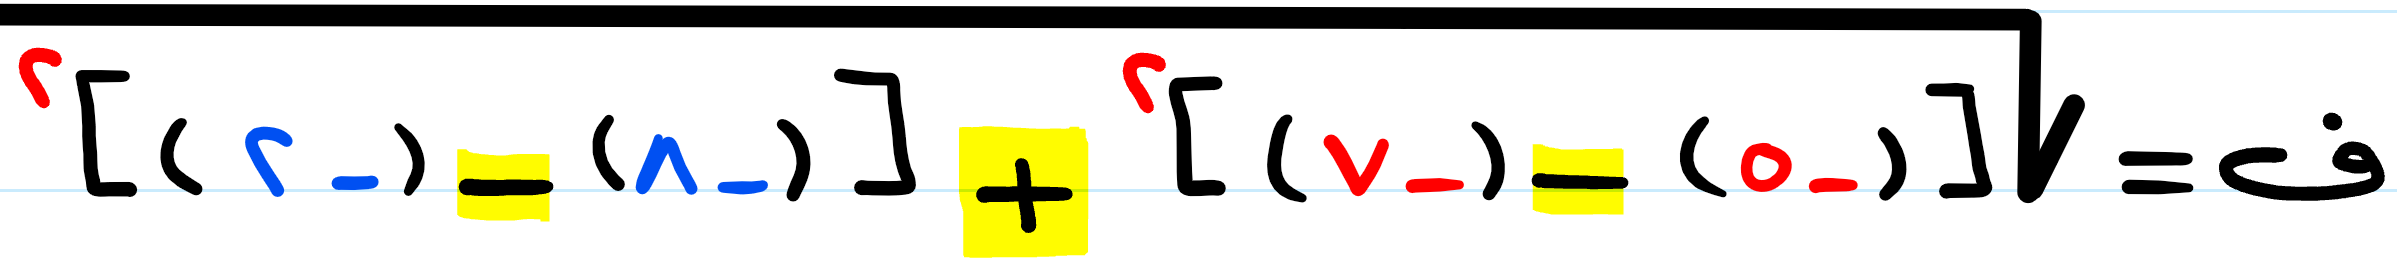 ف = √[(-٥) - (-٧)]٢ + [(-٨) - (-٢)]٢